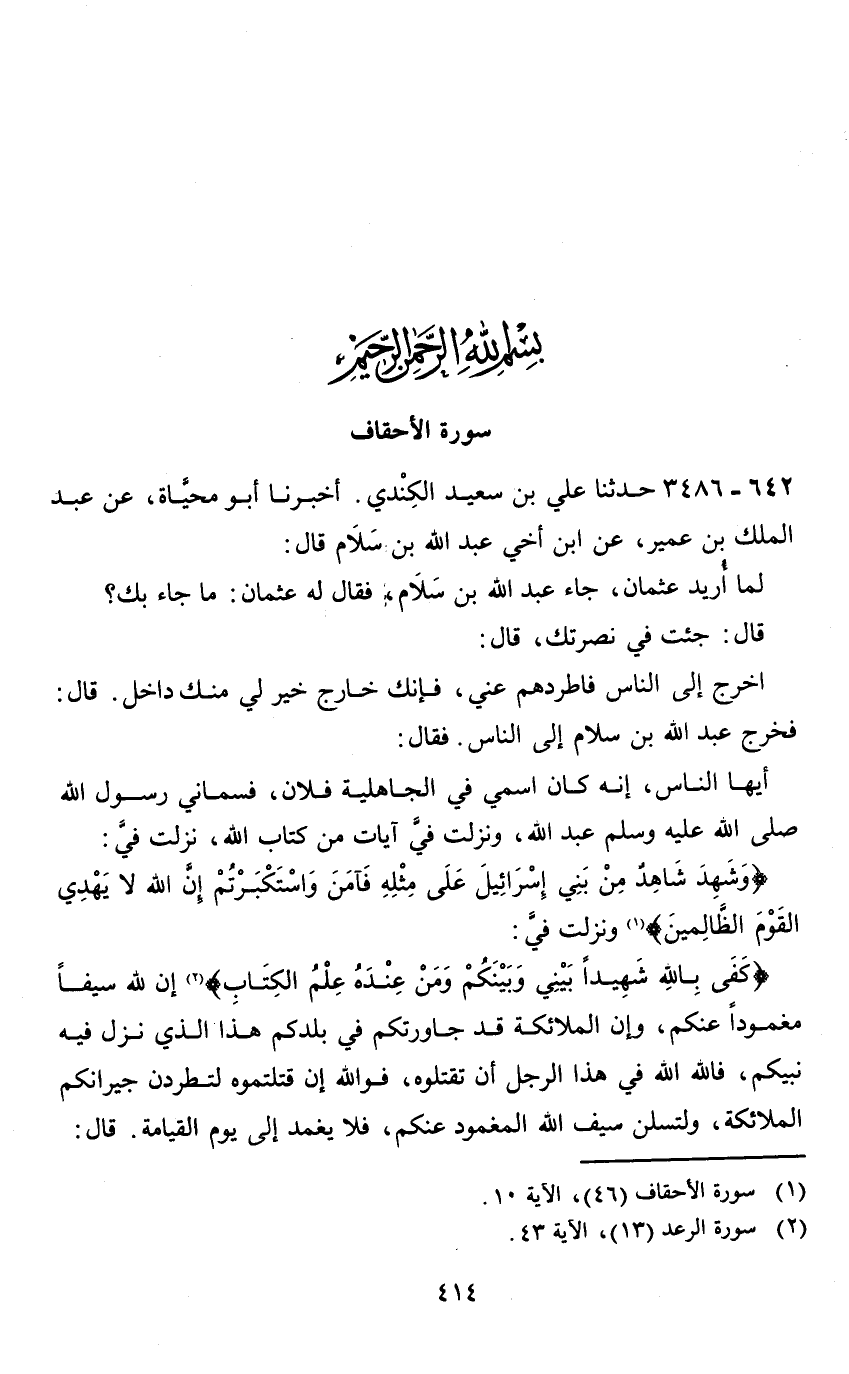 بِسْمِ اللهِ الرَّحْمٰنِ الرَّحِيمِ
سورة الأحقاف
٦٤٢ - ٣٤٨٦ حدثنا علي بن سعيد الكِنْدي. أخبرنا أبو محيَّاة، عن عبد
الملك بن عمير، عن ابن أخي عبد الله بن سَلَام قال:
لما أُريد عثمان، جاء عبد الله بن سَلَام، فقال له عثمان: ما جاء بك؟
قال: جئت في نصرتك، قال:
اخرج إلى الناس فاطردهم عني، فإنك خارج خير لي منك داخل. قال:
فخرج عبد الله بن سلام إلى الناس. فقال:
أيها الناس، إنه كان اسمي في الجاهلية فلان، فسماني رسول الله
صلى الله عليه وسلم عبد الله، ونزلت فيَّ آيات من كتاب الله، نزلت فيَّ:
﴿وَشَهِدَ شَاهِدٌ مِنْ بَنِي إِسْرَائِيلَ عَلَى مِثْلِهِ فَآمَنَ وَاسْتَكْبَرْتُمْ إِنَّ الله لا يَهْدِي
القَوْمَ الظَّالِمينَ﴾(١) ونزلت فيَّ:
﴿كَفَى بِاللهِ شَهِيداً بَيْنِي وَبَيْنَكُمْ وَمَنْ عِنْدَهُ عِلْمُ الكِتَابِ﴾(٢) إن لله سيفاً
مغموداً عنكم، وإن الملائكة قد جاورتكم في بلدكم هذا الذي نزل فيه
نبيكم، فالله الله في هذا الرجل أن تقتلوه، فوالله إن قتلتموه لتطردن جيرانكم
الملائكة، ولتسلن سيف الله المغمود عنكم، فلا يغمد إلى يوم القيامة. قال:
(١) سورة الأحقاف (٤٦)، الآية ١٠.
(٢) سورة الرعد (١٣)، الآية ٤٣.
٤١٤